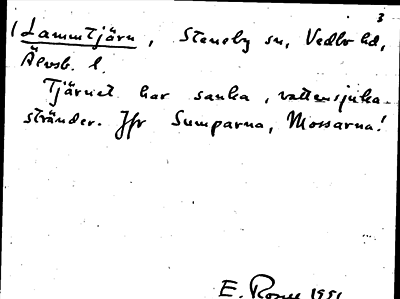 3
Lammtjärn, Steneby sn, Vedbo hd,
Älvsb. l.
Tjärnet har sanka, vattensjuka
stränder. Jfr Sumparna, Mossarna!
E. 1951